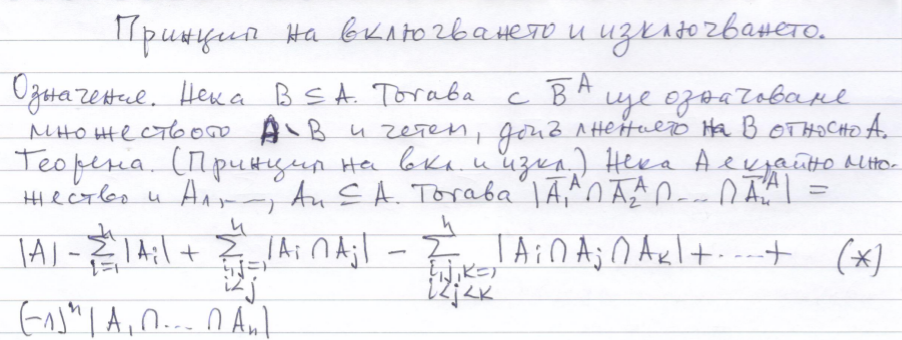 Принцип на включването и изключването.
Означение. Нека B ⊆ A. Тогава с B̅ᴬ ще означаваме
множеството A \ B и четем, допълнението на B относно A.
Теорема. (Принцип на вкл. и изкл.) Нека A е крайно мно-
жество и A₁, ..., Aₙ ⊆ A. Тогава |A̅₁ᴬ ∩ A̅₂ᴬ ∩ ... ∩ A̅ₙᴬ| =
|A| - ∑ⁿᵢ₌₁ |Aᵢ| + ∑ⁿ_{i,j=1, i<j} |Aᵢ ∩ Aⱼ| - ∑ⁿ_{i,j,k=1, i<j<k} |Aᵢ ∩ Aⱼ ∩ Aₖ| + ... + (*)
(-1)ⁿ | A₁ ∩ ... ∩ Aₙ|